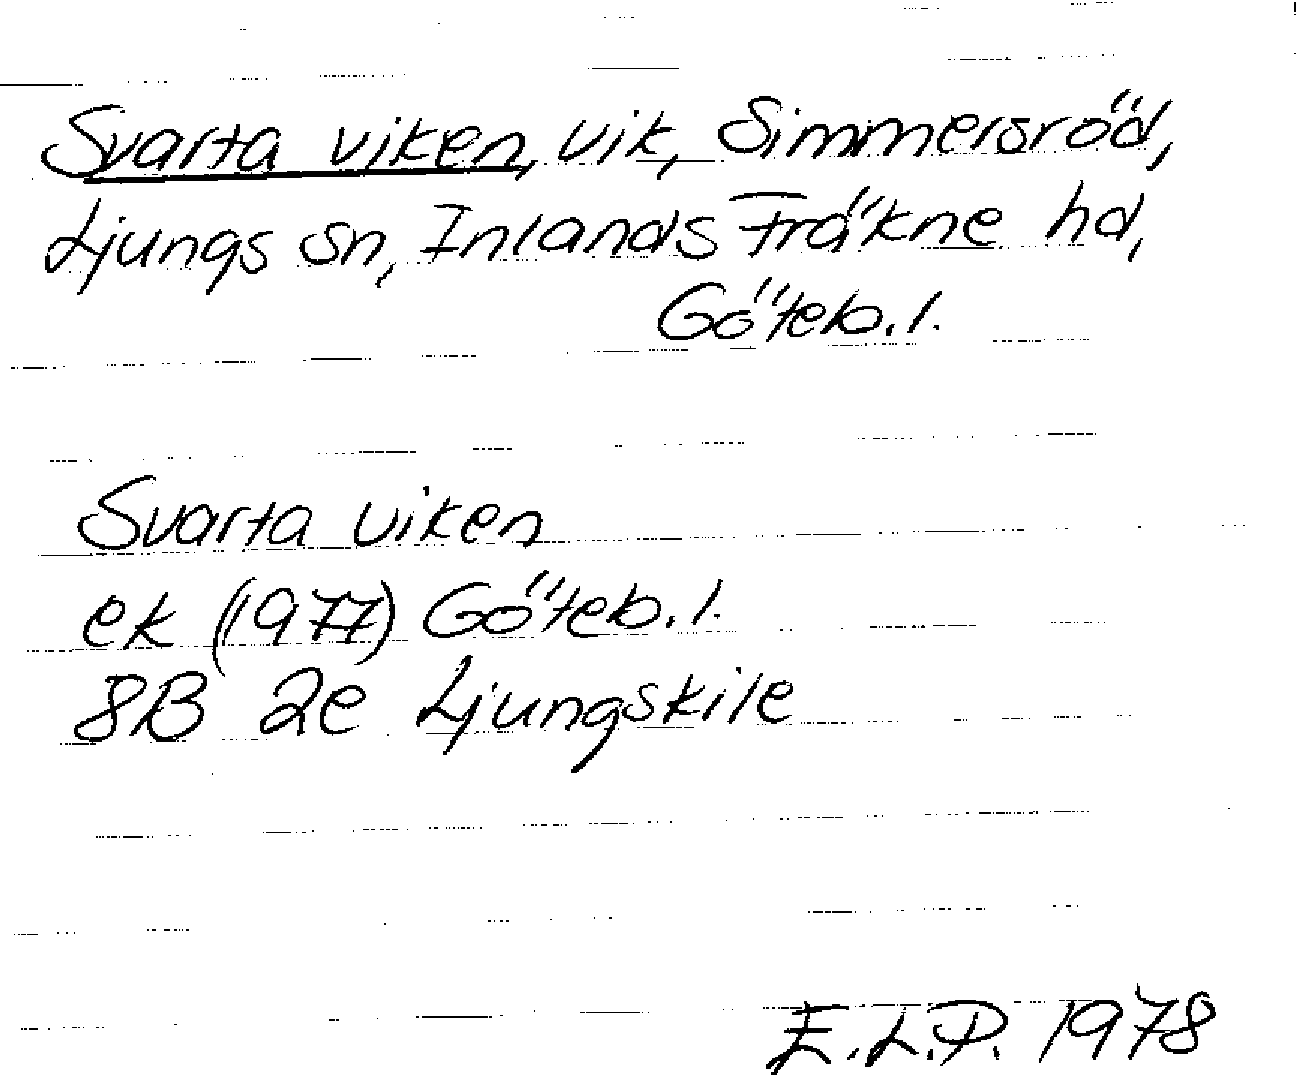 Svarta viken, vik, Simmersröd,
Ljungs sn, Inlands Fräkne hd,
Göteb.l.
Svarta viken
ek (1977) Göteb.l.
8B 2e Ljungskile
E.L.P. 1978